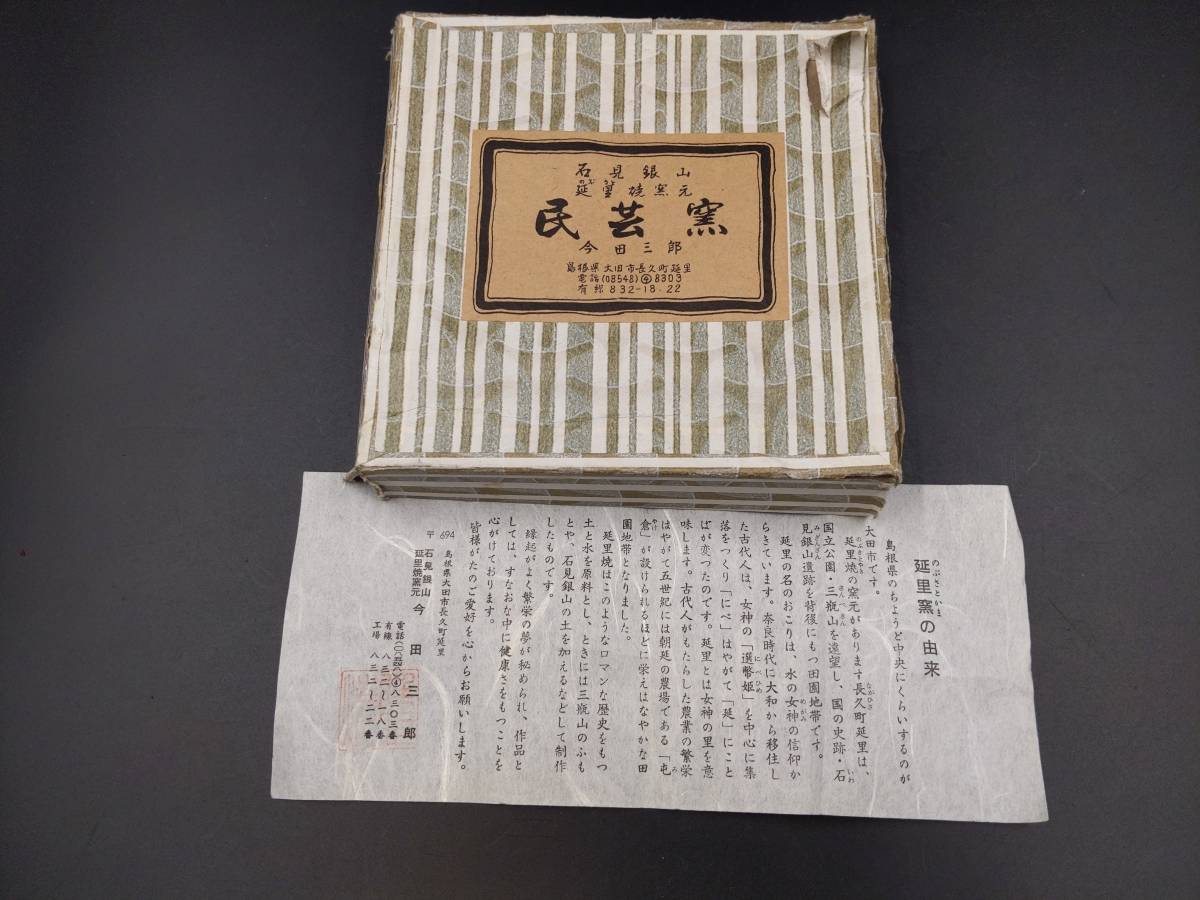 石見銀山
延里焼窯元
民芸窯
今田三郎
島根県大田市長久町延里
電話(08548)④8303
有線832-18.22
延里窯の由来
のぶさとかま
島根県のちょうど中央にくらいするのが
大田市です。
延里焼の窯元があります長久町延里は、
国立公園・三瓶山を遠望し、国の史跡・石
見銀山遺跡を背後にもつ田園地帯です。
延里の名のおこりは、水の女神の信仰か
らきています。奈良時代に大和から移住し
た古代人は、女神の「選幣姫」を中心に集
落をつくり「にべ」はやがて「延」にこと
ばが変つたのです。延里とは女神の里を意
味します。古代人がもたらした農業の繁栄
はやがて五世紀には朝廷の農場である「屯
倉」が設けられるほどに栄えはなやかな田
園地帯となりました。
延里焼はこのようなロマンな歴史をもつ
土と水を原料とし、ときには三瓶山のふも
とや、石見銀山の土を加えるなどして制作
したものです。
縁起がよく繁栄の夢が秘められ、作品と
しては、すなおな中に健康さをもつことを
心がけております。
皆様がたのご愛好を心からお願いします。
〒694 島根県大田市長久町延里
石見銀山
延里焼窯元 今田三郎
電話(〇八五四八)④八三〇三番
有線 八三二ー一八番
工場 八三二ー二二番